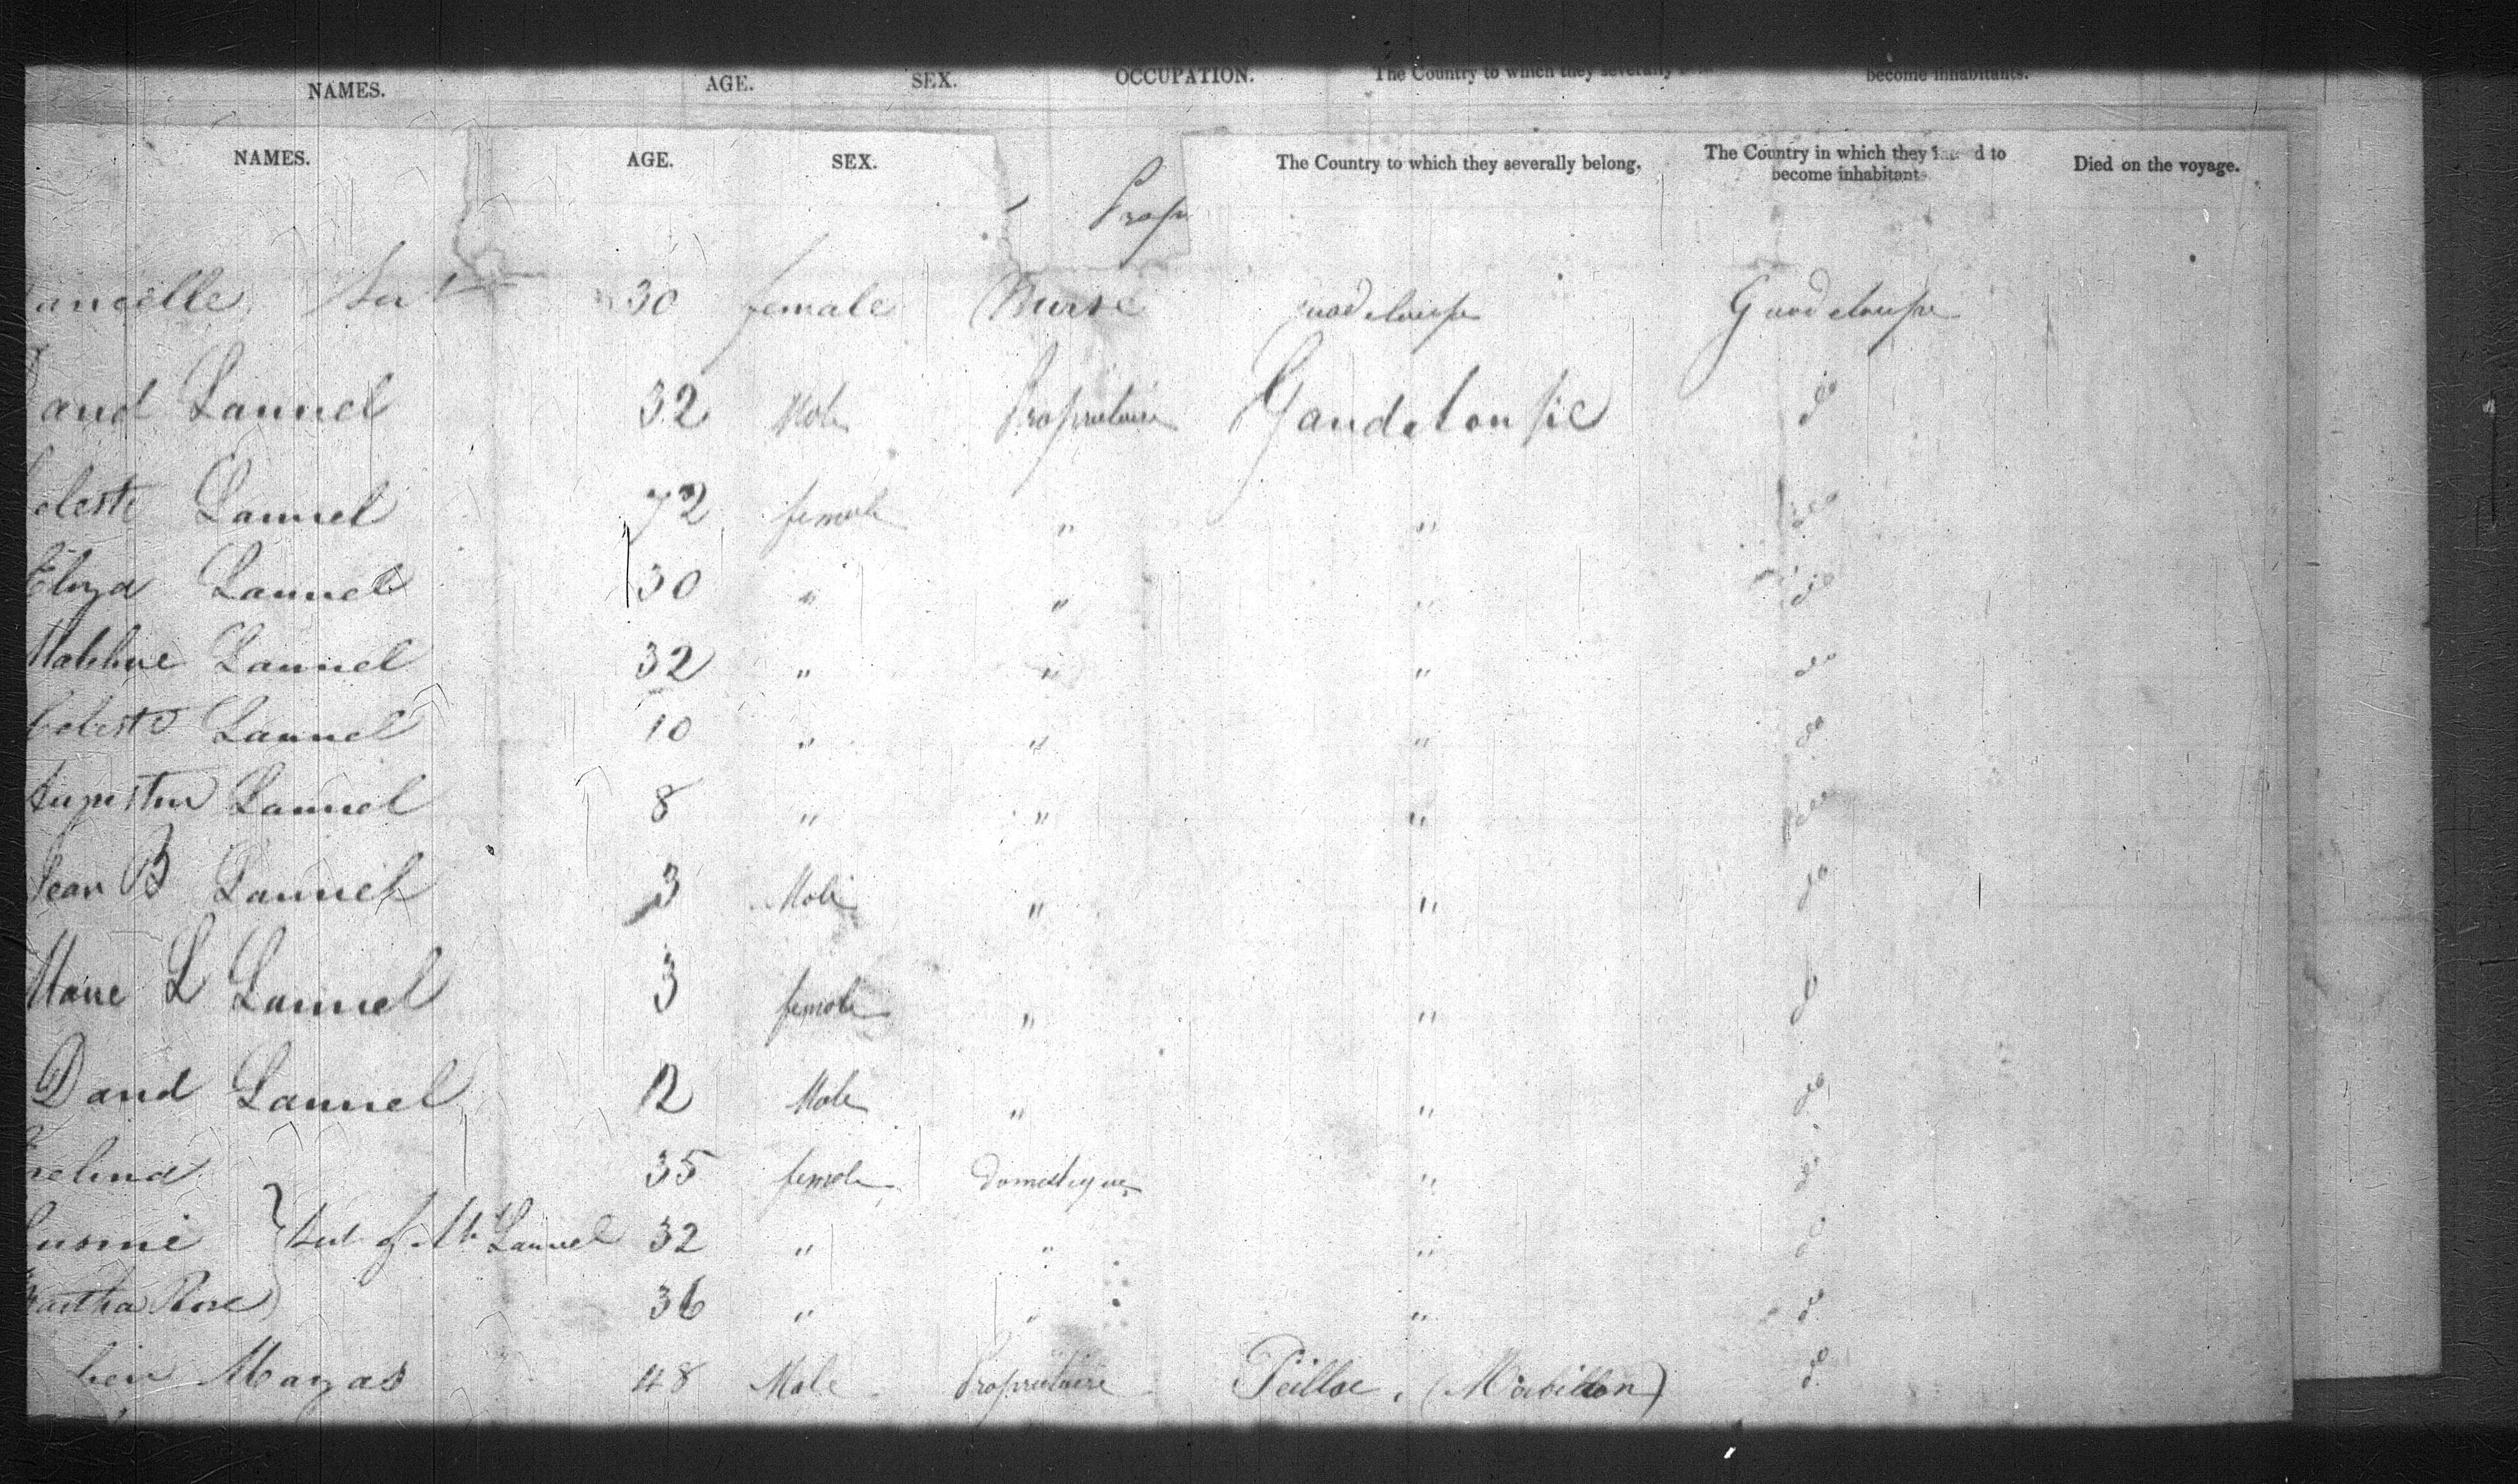 NAMES. AGE. SEX. OCCUPATION. The Country to which they severally become inhabitants.
NAMES. AGE. SEX. The Country to which they severally belong. The Country in which they d to become inhabitants Died on the voyage.
Prop
30 female Nurse uadeloupe Guadeloupe
David Launel 32 Male Propriétaire Gaudeloupe do
Celeste Launel 72 female " " do
Elyza Launel 30 " " " do
Launel 32 " " " do
Celeste Launel 10 " " " do
Augustin Launel 8 " " " do
Jean B Launel 3 Male " " do
Marie L Launel 3 female " " do
David Launel 12 Male " " do
35 female Domestique " do
} of Mr Launel 32 " " " do
Martha Rose 36 " " " do
Mazas 48 Male Propriétaire do